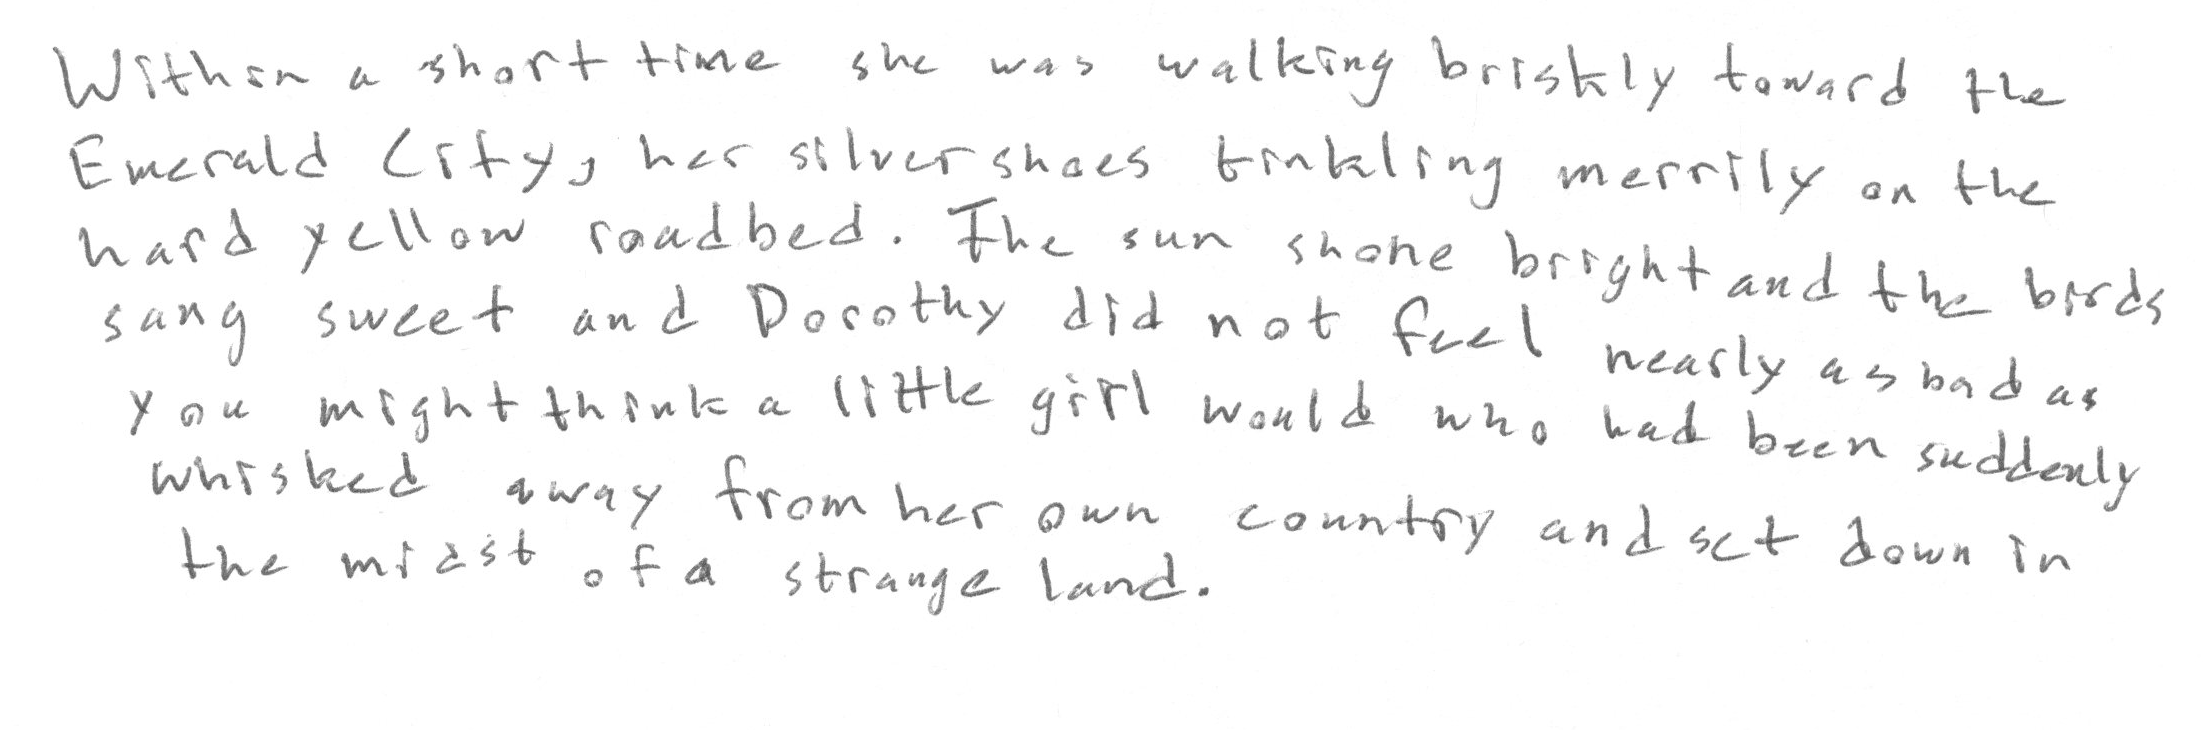 Within a short time she was walking briskly toward the
Emerald City, her silver shoes tinkling merrily on the
hard yellow roadbed. The sun shone bright and the birds
sang sweet and Dorothy did not feel nearly as bad as
you might think a little girl would who had been suddenly
whisked away from her own country and set down in
the midst of a strange land.